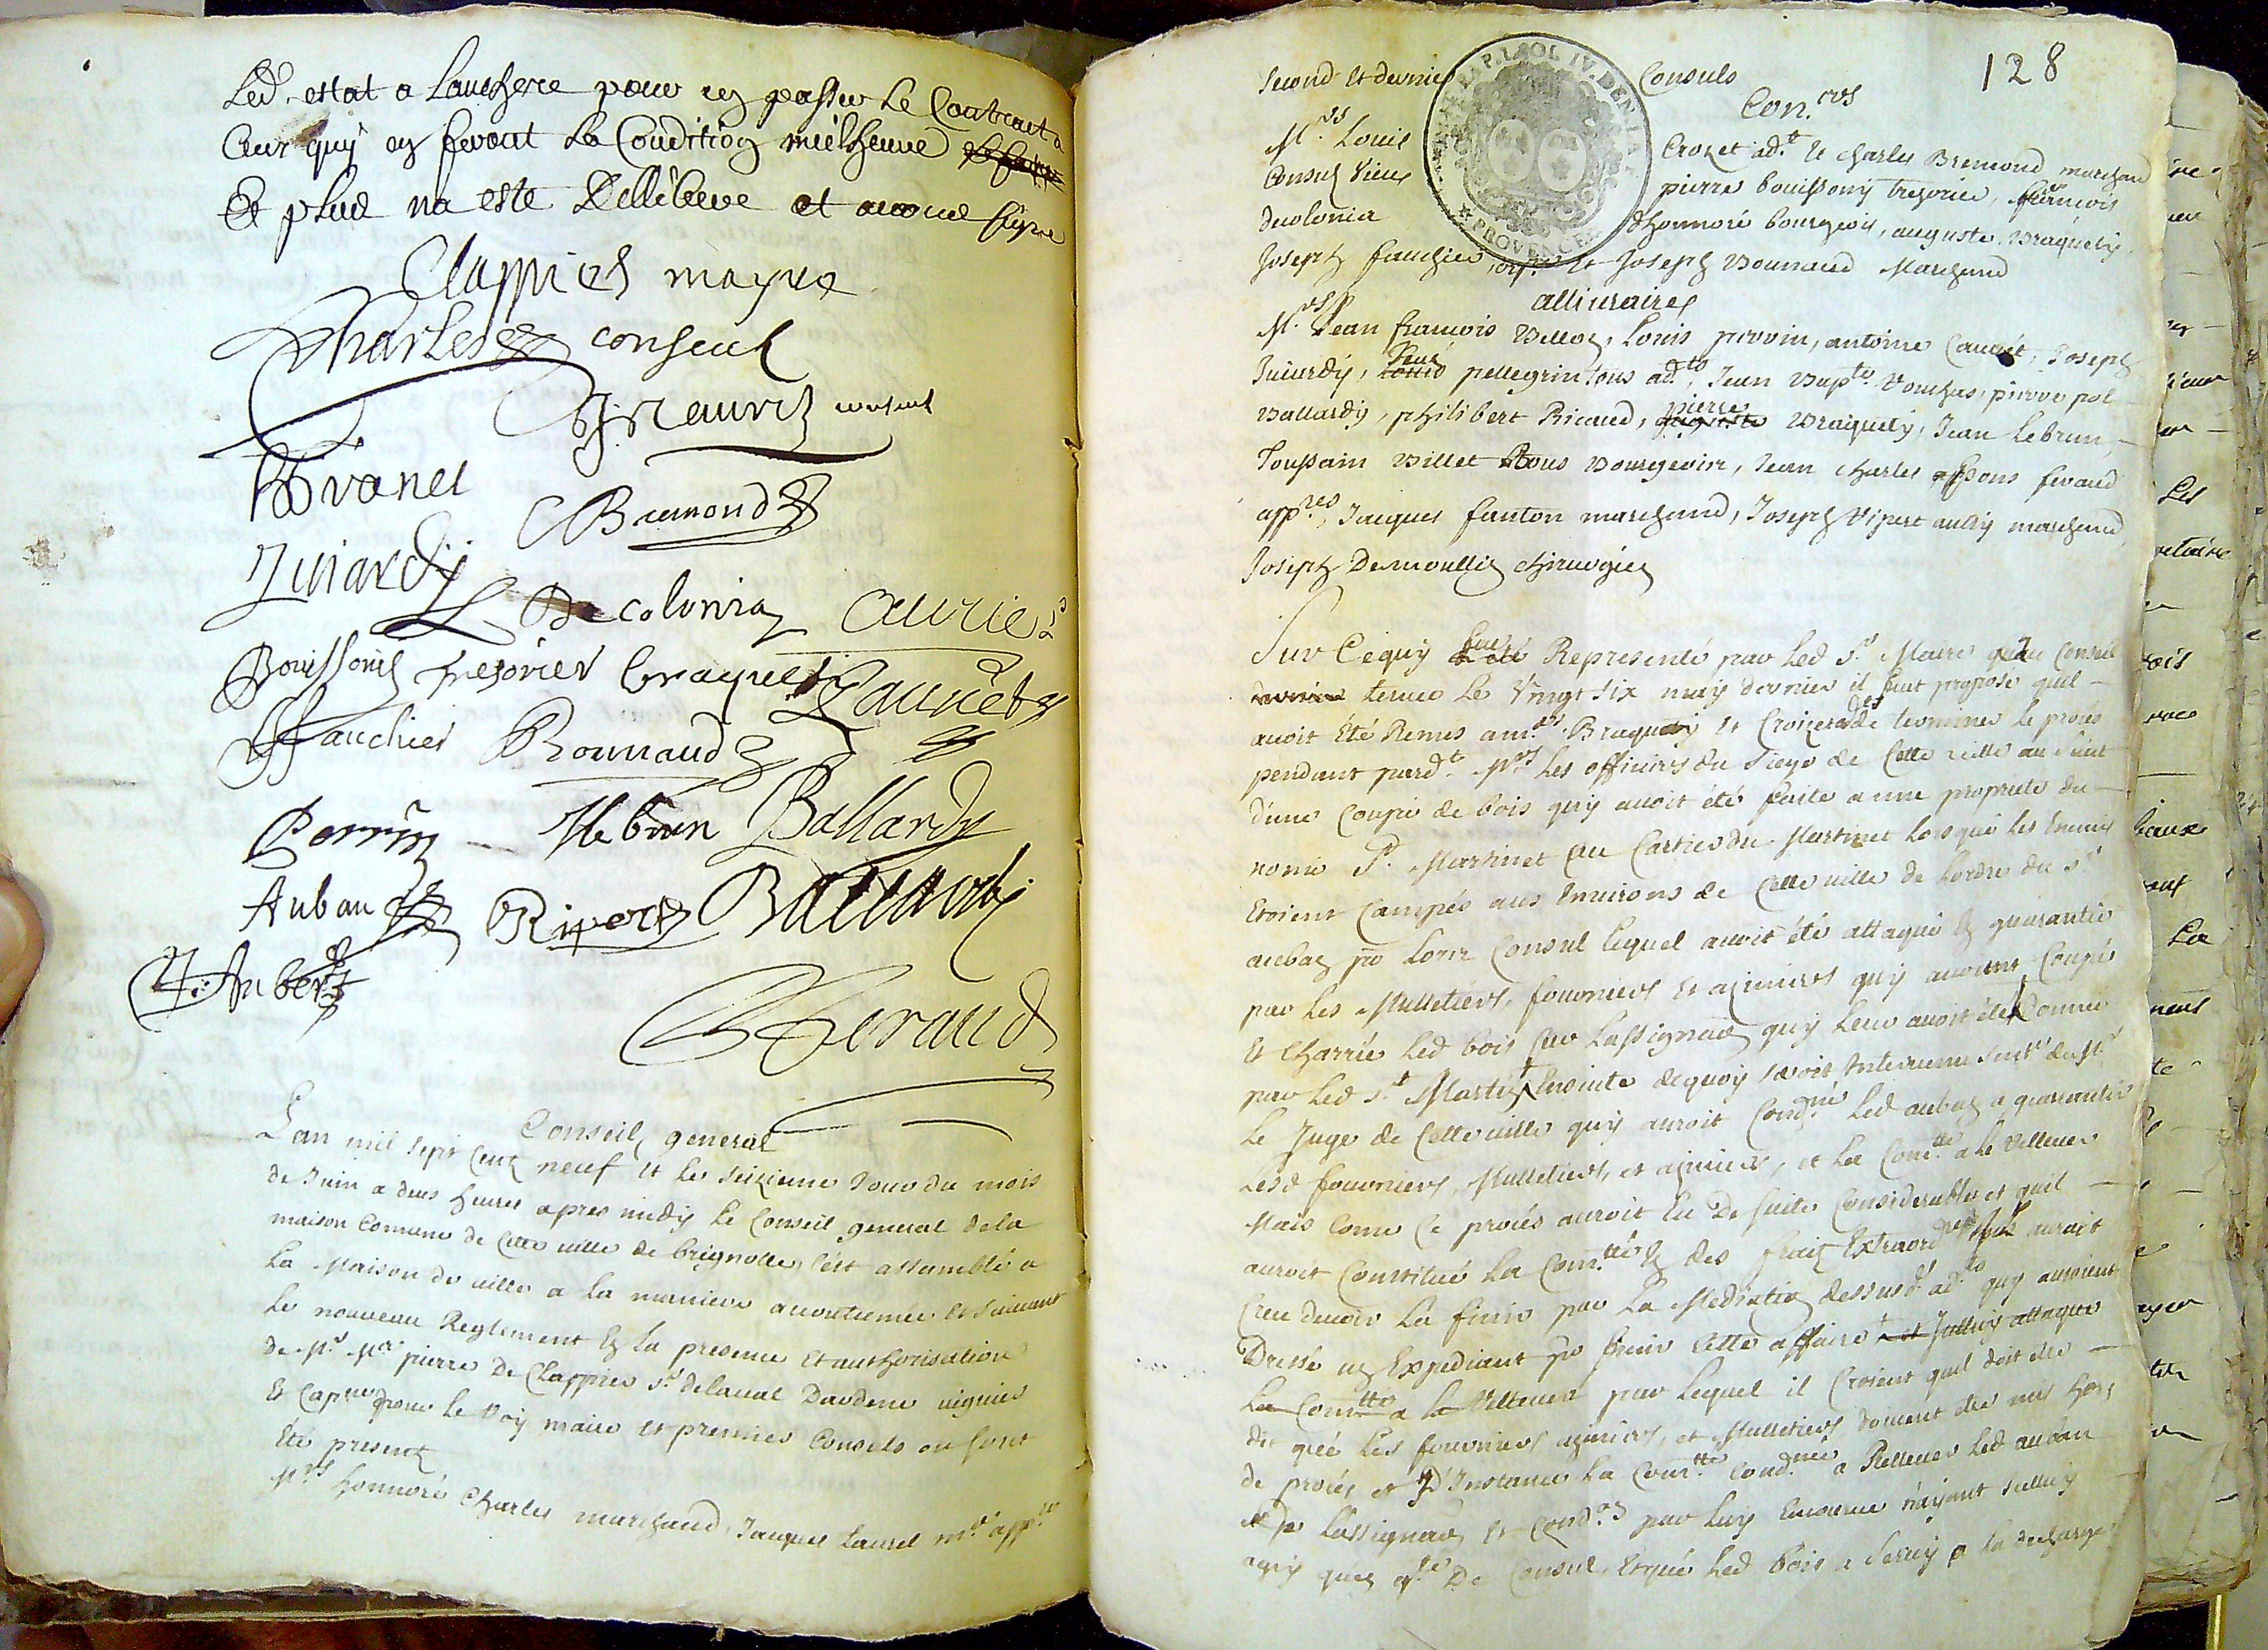 Led. estat a Lanchere pour en passer Le Contract a
Ceux quy en feront La Condition meilheure
Et plus na este Dellibere et avons signe
Clappiers mayre
Charles consul
J. Laurel consul
Bivanel
C Bremond
Juiardy
L Decolonia Aurie
Bouissony tresorier braquety Caunet
J Fauchier Bounaud
Perrin Lebrun Ballardy
Auban Ripert Ballardy
J: Aubert
Feraud
Conseil general
L'an mil sept cent neuf et le seizieme Jour du mois
de Juin a deux heures apres midy le Conseil general de la
maison Comune de Cette ville de brignolle s'est assamblé a
La Maison de ville a la maniere acoutumee et suivant
le nouveau Reglement En la presence et authorisation
de Mr. Me. pierre De Clappiers sr. delaval Dardene viguier
Et Capne. pour le Roy maire et premier Consul ou sont
Eté presents
Mrs honnoré Charles marchand, Jacques Laurel me. appre.
128
second et dernier Consuls
Con.ers
Mrs. Louis Crozet adt. et charles Bremond marchand
Consuls vieux pierre bouissony tresorier, francois
decolonia d'honnoré bourgeois, auguste braquety
Joseph fauchier, et Joseph Bounaud Marchand
alliuraires
Mrs. Jean francois Bellon, Louis perrin, antoine Caunet, Joseph
Juiardy, René pellegrin tous adts., Jean Bapte. Vouchas, pierre pol
Ballardy, philibert Ricaud, pierre Braquety, Jean Lebrun,
Toussain Billet tous Bourgeois, Jean charles feraud
appres, Jacques fanton marchand, Joseph Ripert aussy marchand,
Joseph Demoullin chirurgien
Sur Cequy a eté Representé par led sr. Maire qu'au Conseil
tenu le vingt six may dernier il fut proposé quil
avoit été Remis a mes. Braquety et Croizet de terminer le procés
pendant pardt. Mrs les officiers du Siege de Cette ville au suiet
d'une Coupe de bois quy avoit été faite a une propriete du
nomé Sr. Martinet au Cartier du Martinet lorsque les Ennemis
Etoient Campés aux Environs de Cette ville de lordre du sr.
auban pr lors Consul lequel avoit été attaqué En guarantie
par les Mulletiers, fourniers et aiguiers quy avoient Coupé
Et Charrié led bois sur L'assignaon quy leur avoit été donnée
par Led sr. Martin Ensuite dequoy seroit Intervenue sente. du sr
Le Juge de Cette ville quy auroit Condné. Led auban a guarantir
Lesd fourniers, Mulletiers, et aiguiers, et La Comte. a le Rellever
Mais Come Ce procés auroit Eu De suite Considerable et quil
auroit Constitué La Comté. En des fraix Extraordres. auroit
Creu devoir la finir par La Mediation dessusd. adts. quy auroient
Dressé un Expediant pr finir cette affaire
La Comte. a le Rellever par lequel il Croient quil doit etre
dit que les fourniers aiguiers, et Mulletiers doivent etre mis hors
de procés et d'Instance La Comte. Condnée. a Rellever led auban
de L'assignaon et Condon par luy Encourue n'ayant sulluy
agy quen qte. De Consul, Etque led bois a servy a la decharge